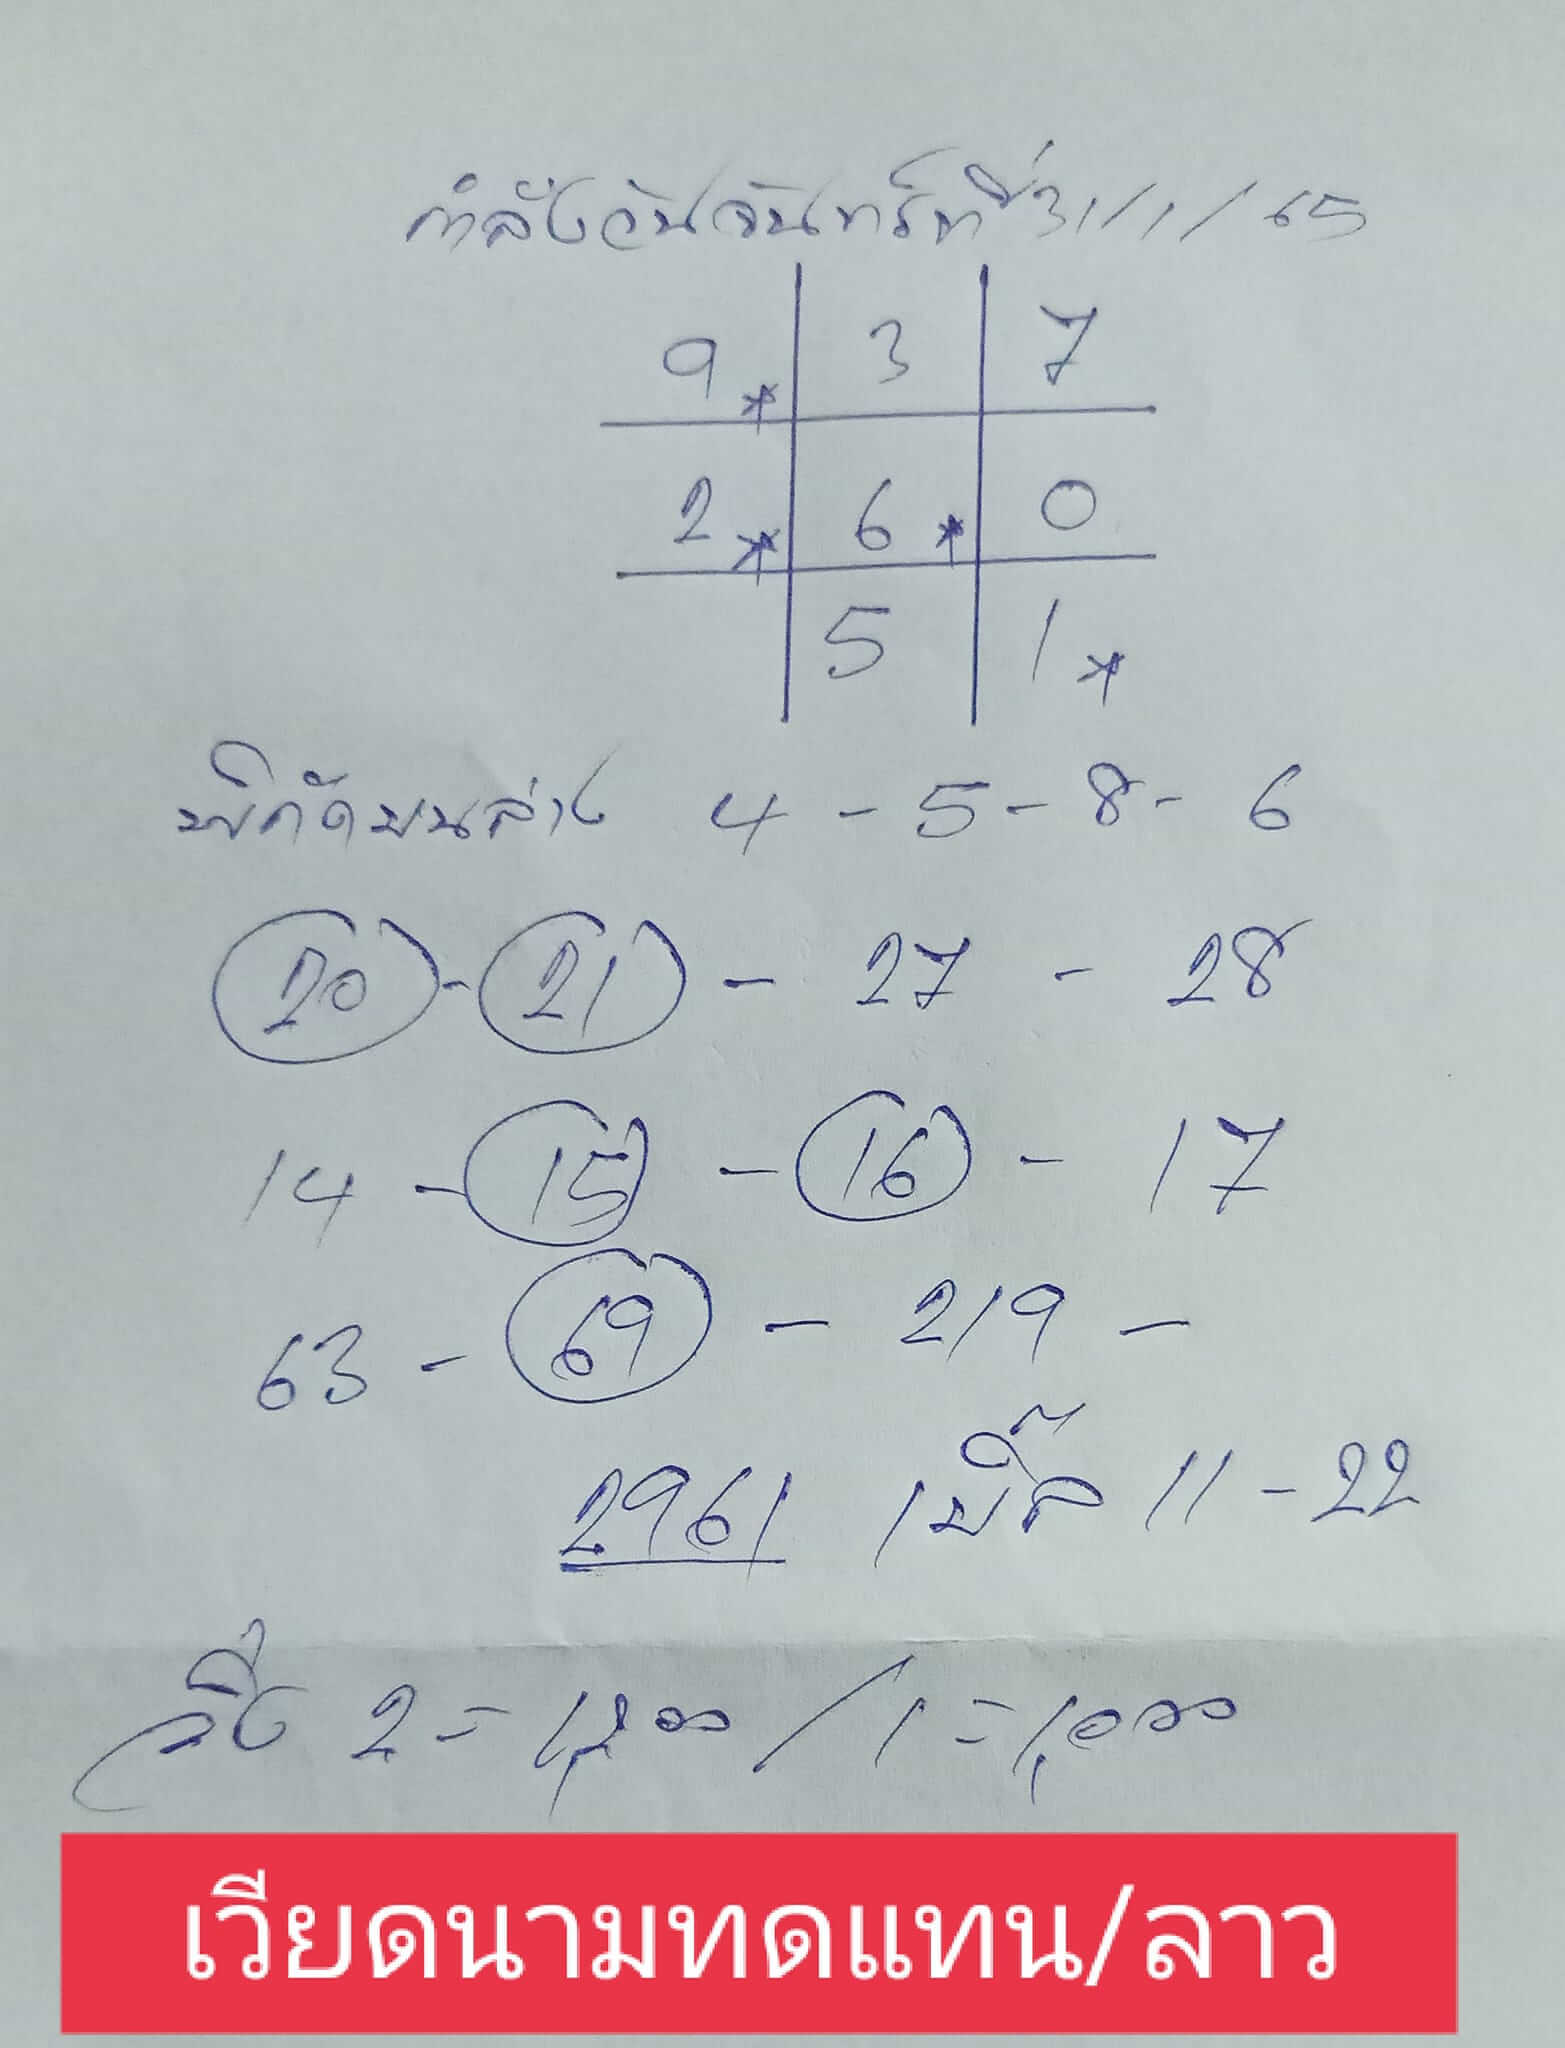 กำลังวันจันทร์ที่ 31/1/65
9* 3 7
2* 6* 0
5 1*
พิกัดบนล่าง 4 - 5 - 8 - 6
20 - 21 - 27 - 28
14 - 15 - 16 - 17
63 - 69 - 219 -
2961 เบิ๊ล 11 - 22
วิ่ง 2 = 1,200 / 1 = 1,000
เวียดนามทดแทน/ลาว